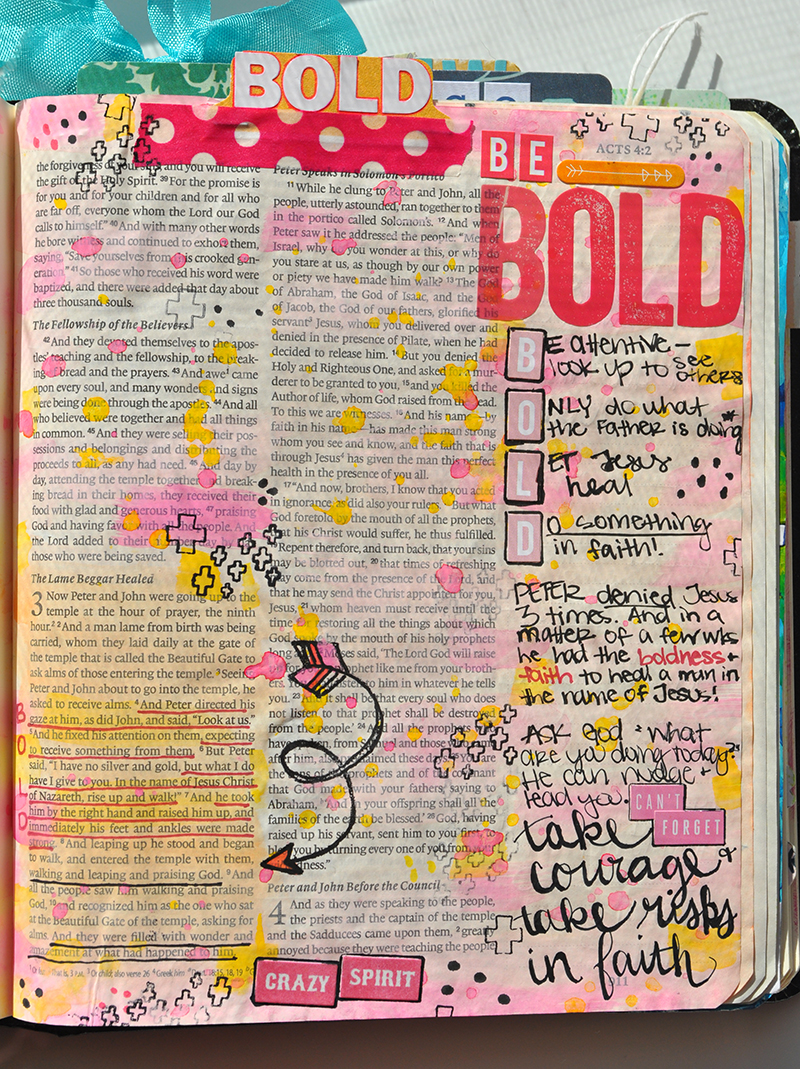 BOLD
the forgiveness of your sins, and you will receive
the gift of the Holy Spirit. 39 For the promise is
for you and for your children and for all who
are far off, everyone whom the Lord our God
calls to himself." 40 And with many other words
he bore witness and continued to exhort them,
saying, "Save yourselves from this crooked gen-
eration." 41 So those who received his word were
baptized, and there were added that day about
three thousand souls.
The Fellowship of the Believers
42 And they devoted themselves to the apos-
tles' teaching and the fellowship, to the break-
ing of bread and the prayers. 43 And awe came
upon every soul, and many wonders and signs
were being done through the apostles. 44 And all
who believed were together and had all things
in common. 45 And they were selling their pos-
sessions and belongings and distributing the
proceeds to all, as any had need. 46 And day by
day, attending the temple together and break-
ing bread in their homes, they received their
food with glad and generous hearts, 47 praising
God and having favor with all the people. And
the Lord added to their number day by day
those who were being saved.
The Lame Beggar Healed
3 Now Peter and John were going up to the
temple at the hour of prayer, the ninth
hour. 2 And a man lame from birth was being
carried, whom they laid daily at the gate of
the temple that is called the Beautiful Gate to
ask alms of those entering the temple. 3 Seeing
Peter and John about to go into the temple, he
asked to receive alms. 4 And Peter directed his
gaze at him, as did John, and said, "Look at us."
5 And he fixed his attention on them, expecting
to receive something from them. 6 But Peter
said, "I have no silver and gold, but what I do
have I give to you. In the name of Jesus Christ
of Nazareth, rise up and walk!" 7 And he took
him by the right hand and raised him up, and
immediately his feet and ankles were made
strong. 8 And leaping up he stood and began
to walk, and entered the temple with them,
walking and leaping and praising God. 9 And
all the people saw him walking and praising
God, 10 and recognized him as the one who sat
at the Beautiful Gate of the temple, asking for
alms. And they were filled with wonder and
amazement at what had happened to him.
BOLD
Peter Speaks in Solomon's Portico
11 While he clung to Peter and John, all the
people, utterly astounded, ran together to them
in the portico called Solomon's. 12 And when
Peter saw it he addressed the people: "Men of
Israel, why do you wonder at this, or why do
you stare at us, as though by our own power
or piety we have made him walk? 13 The God
of Abraham, the God of Isaac, and the God
of Jacob, the God of our fathers, glorified his
servant Jesus, whom you delivered over and
denied in the presence of Pilate, when he had
decided to release him. 14 But you denied the
Holy and Righteous One, and asked for a mur-
derer to be granted to you, 15 and you killed the
Author of life, whom God raised from the dead.
To this we are witnesses. 16 And his name—by
faith in his name—has made this man strong
whom you see and know, and the faith that is
through Jesus has given the man this perfect
health in the presence of you all.
17 "And now, brothers, I know that you acted
in ignorance, as did also your rulers. But what
God foretold by the mouth of all the prophets,
that his Christ would suffer, he thus fulfilled.
Repent therefore, and turn back, that your sins
may be blotted out, 20 that times of refreshing
may come from the presence of the Lord, and
that he may send the Christ appointed for you,
Jesus, 21 whom heaven must receive until the
time for restoring all the things about which
God by the mouth of his holy prophets
long Moses said, 'The Lord God will raise
up for prophet like me from your broth-
ers. You listen to him in whatever he tells
you. 23 And it shall be that every soul who does
not listen to that prophet shall be destroyed
from the people.' 24 And all the prophets who
have from Samuel and those who
after him, also proclaimed these days. You are
the sons of the prophets and of the covenant
that God made with your fathers, saying to
Abraham, 'And in your offspring shall all the
families of the earth be blessed.' 26 God, having
raised up his servant, sent him to you first, to
bless you by turning every one of you from your
wickedness."
Peter and John Before the Council
4 And as they were speaking to the people,
the priests and the captain of the temple
and the Sadducees came upon them, 2 greatly
annoyed because they were teaching the people
CRAZY SPIRIT
ACTS 4:2
BE
BOLD
BE attentive—
look up to see
others
ONLY do what
the Father is doing
LET Jesus
heal
DO something
in faith!
PETER denied Jesus
3 times. And in a
matter of a few wks
he had the boldness +
faith to heal a man in
the name of Jesus!
ASK God "what
are you doing today?"
He can nudge +
lead you.
CAN'T
FORGET
take
courage +
take risks
in faith
911